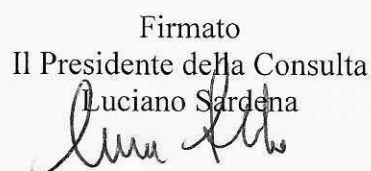 Firmato
Il Presidente della Consulta
Luciano Sardena